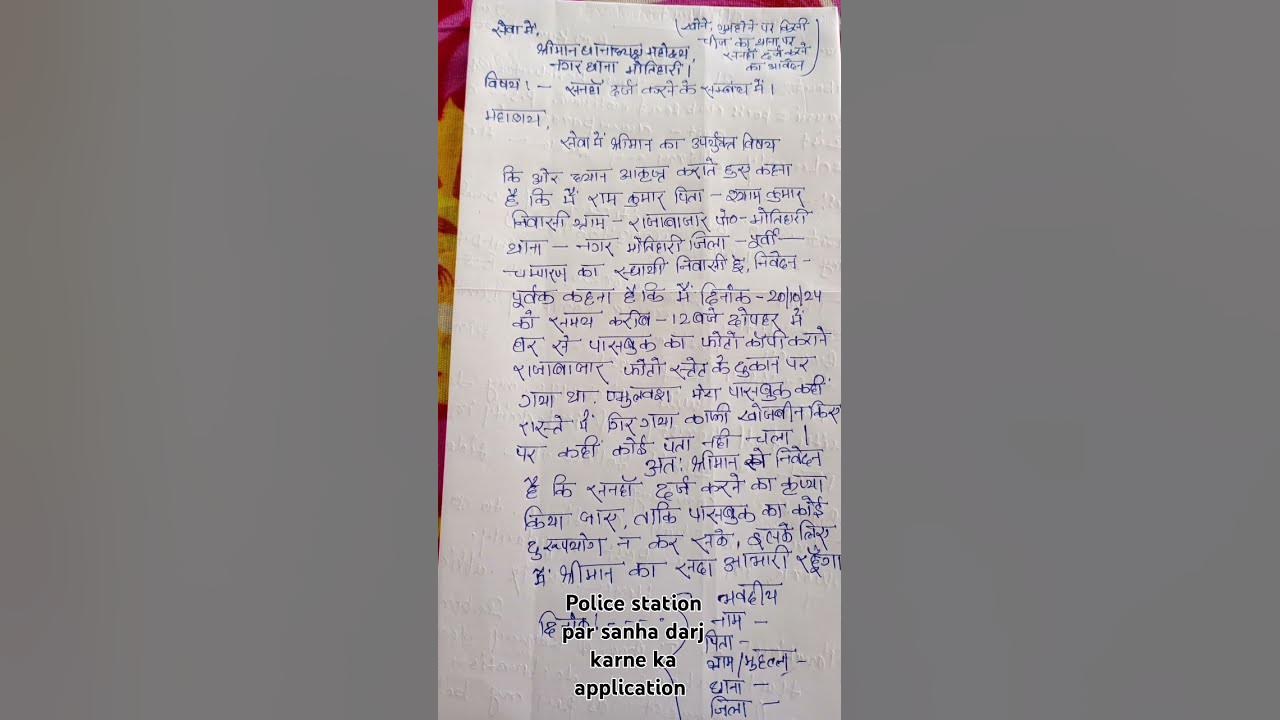 सेवा में,
(खोने, गुम होने पर किसी
चीज का थाना पर
सनहाँ दर्ज करने
का आवेदन)
श्रीमान थानाध्यक्ष महोदय,
नगर थाना मोतिहारी।
विषय:- सनहाँ दर्ज करने के सम्बंध में।
महाशय,
सेवा में श्रीमान का उपर्युक्त विषय
कि ओर ध्यान आकृष्ट कराते हुए कहना
है कि मैं राम कुमार पिता - श्याम कुमार
निवासी ग्राम - राजाबाजार पो०- मोतिहारी
थाना - नगर मोतिहारी जिला - पूर्वी
चम्पारण का स्थायी निवासी हूँ, निवेदन -
पूर्वक कहना है कि मैं दिनांक - 20/10/24
को समय करीब - 12 बजे दोपहर में
घर से पासबुक का फोटो कॉपी कराने
राजाबाजार फोटो स्टेट के दुकान पर
गया था. मेरा पासबुक कहीं
रास्ते में गिर गया काफी खोजबीन किए
पर कहीं कोई पता नही चला।
अतः श्रीमान से निवेदन
है कि सनहाँ दर्ज करने का कृप्या
किया जाए, ताकि पासबुक का कोई
दुरूपयोग न कर सके, इसके लिए
मैं श्रीमान का सदा आभारी रहूँगा
भवदीय
दिनांक:- - - -
नाम -
पिता -
ग्राम/मुहल्ला -
थाना -
जिला -
Police station
par sanha darj
karne ka
application